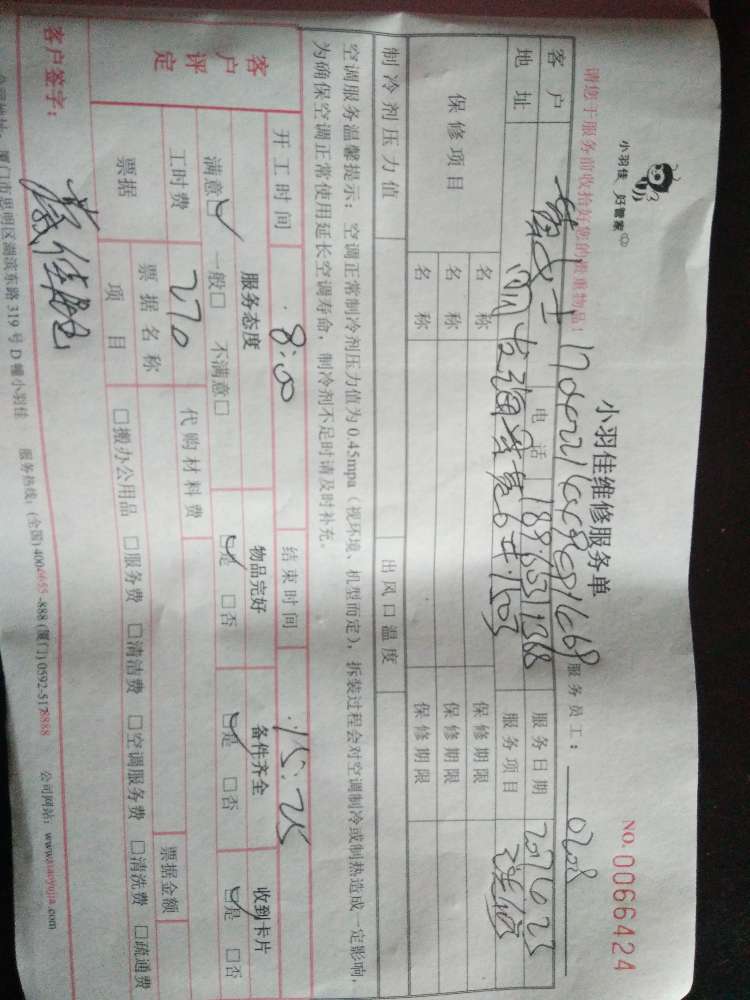 小羽佳 好管家
小羽佳维修服务单
NO. 0066424
请您于服务前收拾好您的贵重物品!
服务员工: 0208
客户 电话 服务日期
地址 服务项目
保修项目 名称 保修期限
名称 保修期限
名称 保修期限
制冷剂压力值 出风口温度
空调服务温馨提示:空调正常制冷剂压力值为0.45mpa(视环境、机型而定),拆装过程会对空调制冷或制热造成一定影响,
为确保空调正常使用延长空调寿命,制冷剂不足时请及时补充。
开工时间 8:00 结束时间 15:25
客户评定 服务态度 物品完好 备件齐全 收到卡片
满意☑ 一般□ 不满意□ ☑是 □否 ☑是 □否 ☑是 □否
工时费 270 代购材料费
票据 票据名称 票据金额
项目 □搬办公用品 □服务费 □清洁费 □空调服务费 □清洗费 □疏通费
客户签字:
厦门市思明区湖滨东路319号D幢小羽佳 服务热线:(全国)4006655-888(厦门)0592-5178888 公司网站:www.xiaoyujia.com